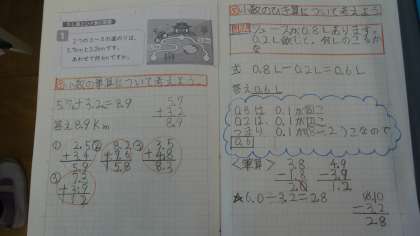 1
2つのコースの道のりは、
5.7kmと3.2kmです。
あわせて何kmですか。
小数の筆算について考えよう。
5.7+3.2=8.9
5.7
+3.2
8.9
答え8.9Km
① 2.5
② 8.2
③ 3.5
+4.8
5.8
8.3
7.3
+3.9
小数のひき算について考えよう
ジュースが0.8Lあります。
0.2L飲むと、何Lのこるか
な
式 0.8L-0.2L=0.6L
答え0.6L
0.8は 0.1が8こ
0.2は 0.1が2こ
つまり 0.1が(8-2)こなので
0.6
<筆算>
3.8
-1.8
2.0
4.9
-3.9
1.2
☆6.0-3.2=2.8
-3.2
2.8